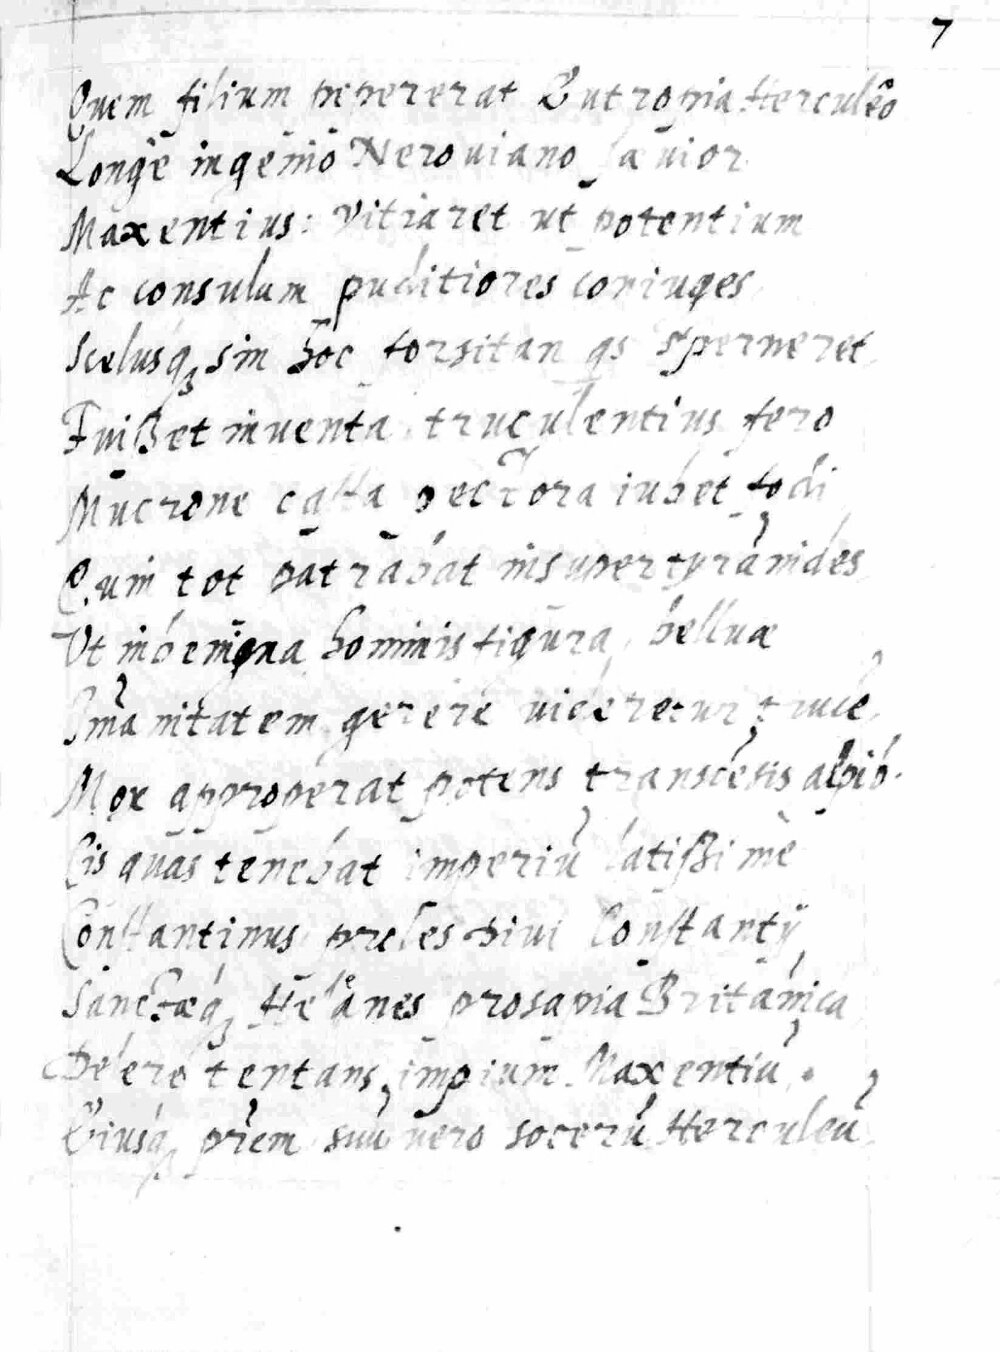 7
Quem filium pepererat Eutropia Herculeo
Longè ingenio Neroviano sævior
Maxentius: vitiaret ut potentium
Ac consulum puditiores coniuges
Scelusq; sin hoc forsitan qs sperneret
Fuißet inventa truculentius fero
Mucrone casta pectora iubet fodi
Cum tot patrabat insuper tyrānides
Ut in benigna hominis figura, belluæ
Imānitatem gerere videretur truce.
Mox approperat potens transcēsis alpib.
Cis quas tenebat imperiū latißimè
Constantinus proles divi Constantÿ
Sanctæq; Helænes prosapia Britānica
Delere tentans, impium Maxentiū.
Eiusq; prēm suū vero socerū Herculeū